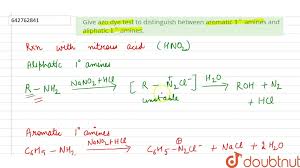 642762841
Give azo dye test to distinguish between aromatic 1° amines and
aliphatic 1° amines.
Rxn with nitrous acid (HNO₂)
Aliphatic 1° amines
R-NH₂ NaNO₂+HCl → [R-N₂⁺Cl⁻] H₂O → ROH + N₂
unstable + HCl
Aromatic 1° amines
C₆H₅-NH₂ NaNO₂+HCl → C₆H₅-N₂⁺Cl⁻ + NaCl + 2H₂O
doubtnut